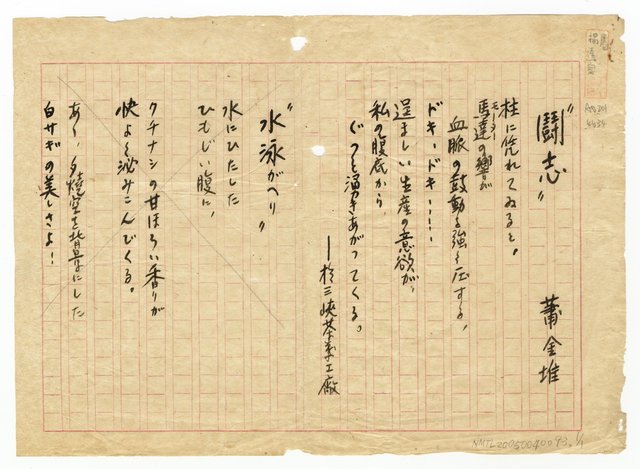 "闘志"
蕭金堆
柱に凭れてゐると。
馬達の響が
モーター
血脈の鼓動を強く圧する。
ドキー、ドキー……
逞ましい生産の意欲が、
私の腹底から、
ぐっと湧きあがってくる。
—於三峡茶業工廠
"水泳がへり"
水にひたした
ひもじい腹に、
クチナシの甘ほろい香りが
快よく泌みこんでくる。
あゝ、夕燒空を背景にした
白サギの美しさよ！
NMTL20050040093 1/1